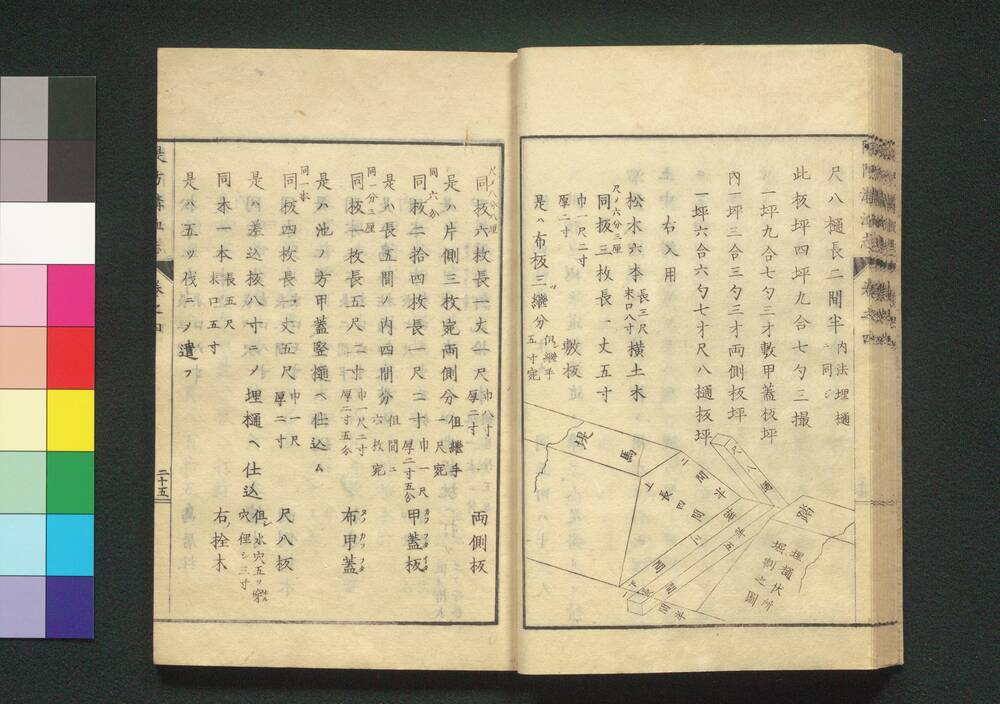 尺八樋長二間半 内法埋樋ニ同シ
此板坪四坪九合七勺三撮
一坪九合七勺三才敷甲蓋板坪
内一坪三合三勺三才両側板坪
一坪六合六勺七才尺八樋板坪
右入用
松木六本 長三尺 末口八寸 横土木
尺〆六分三厘
同板三枚長一丈五寸
巾一尺二寸 厚二寸 敷板
是ハ布板三ツ継分 但継手五寸宛
堤
馬
踏
尺八
二間半
上長四間
埋樋伏所
堀割之図
尺〆八分八厘
同板六枚長一丈一尺 巾八寸 厚二寸 両側板
是ハ片側三枚宛両側分 但継手一尺宛
同六分
同板二拾四枚長一尺二寸 巾一尺 厚二寸五分 甲蓋板
是ハ長五間ノ内四間分 但間ニ六枚宛
同一分三厘
同板一枚長五尺二寸 巾一尺二寸 厚二寸五分 布甲蓋
是ハ池ノ方甲蓋竪樋ヘ仕込ム
同一本
同板四枚長二丈五尺 巾一尺 厚二寸 尺八板
是ハ差込抜八寸ニ〆埋樋ヘ仕込 但シ水穴五ツ
穴俚シ三寸
同木一本 長五尺 末口五寸 右ノ栓木
是ハ五ツ伐ニ〆遣フ
二十五